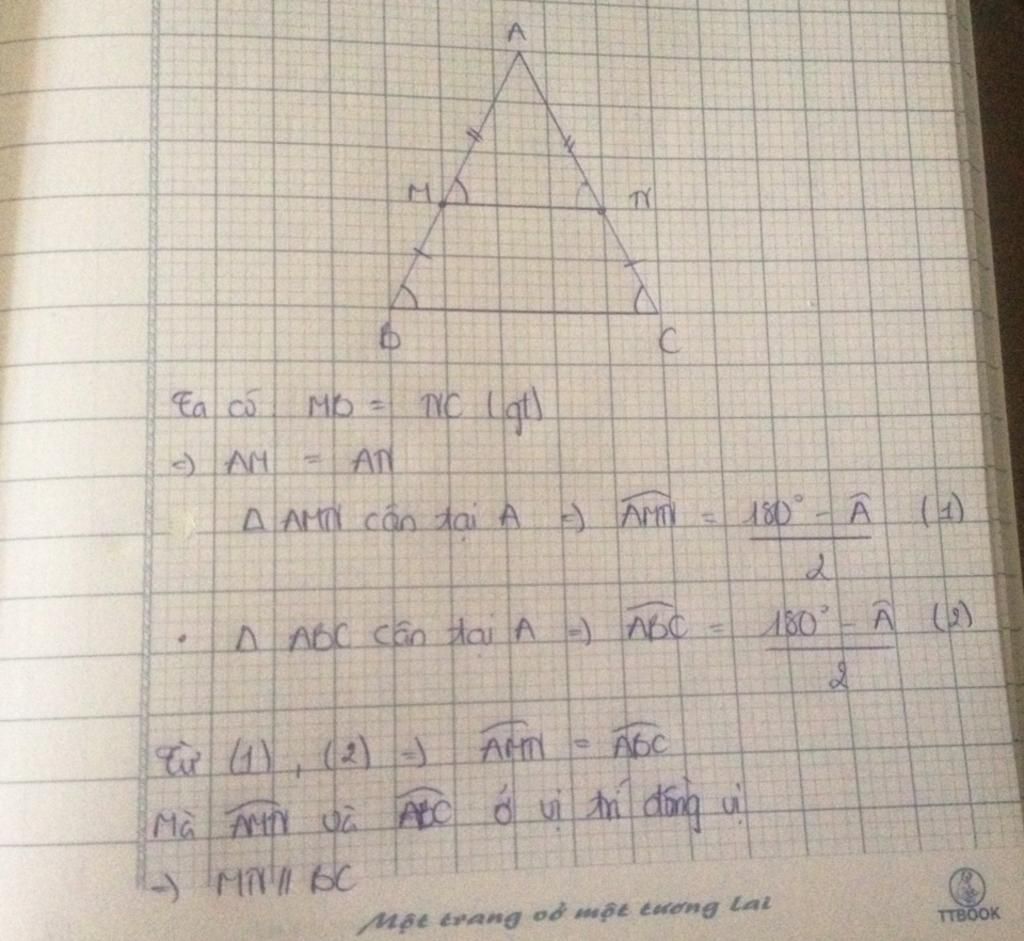 A
M N
B C
Ta có MB = NC (gt)
=> AM = AN
Δ AMN cân tại A => \widehat{AMN} = \frac{180° - \widehat{A}}{2} (1)
• Δ ABC cân tại A => \widehat{ABC} = \frac{180° - \widehat{A}}{2} (2)
Từ (1), (2) => \widehat{AMN} = \widehat{ABC}
Mà \widehat{AMN} và \widehat{ABC} ở vị trí đồng vị
=> MN // BC
Một trang vở một tương lai
TTBOOK